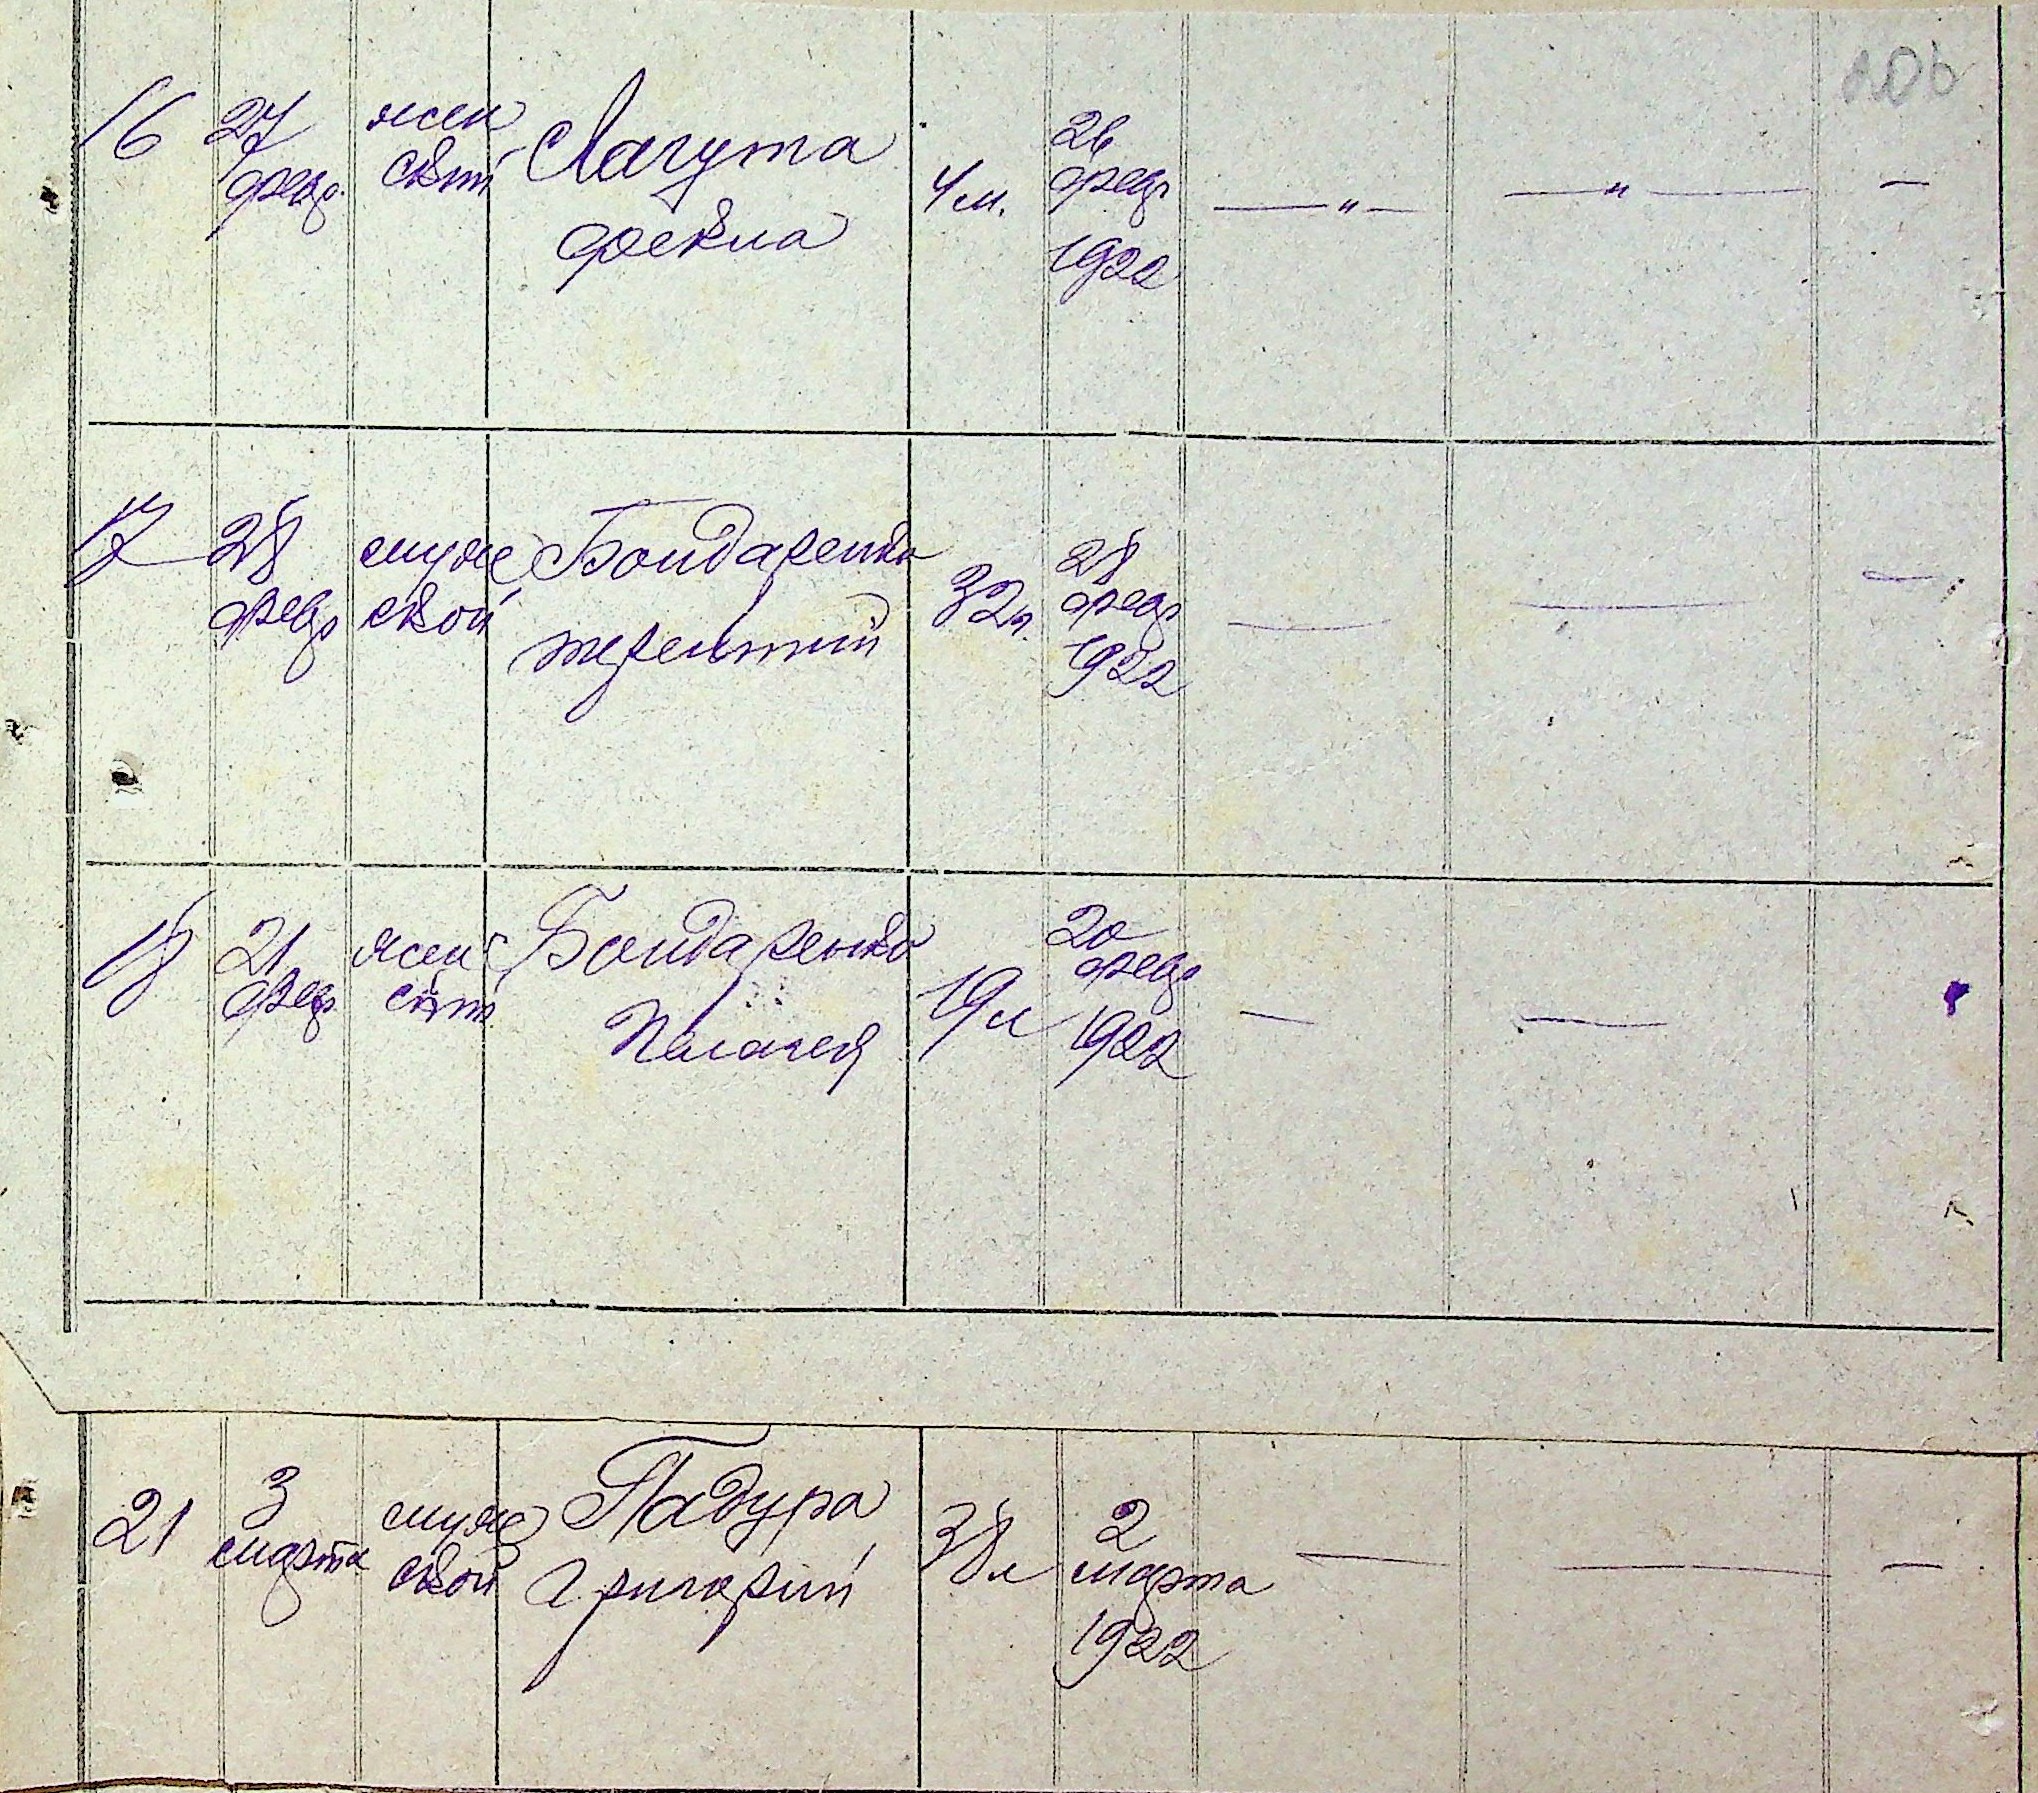 20б
16 27 февр. жен ский Лагута Фекла 4 м. 26 февр 1922 — " — — " — —
17 28 февр муж ской Бондаренко Терентий 32 л. 28 февр 1922 — — —
18 21 февр. жен ский Бондаренко Пелагея 19 л 20 февр 1922 — —
21 3 марта муж ской Падура Григорий 38 л 2 марта 1922 — — —